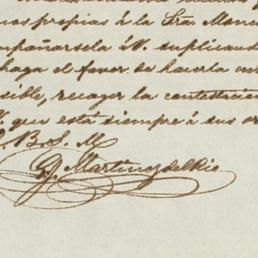 mas propias á la Sra. Monc
mpañársela á V. suplicand
haga el favor de hacerla en
sible, recoger la contestacion
V. que está siempre á sus or
B. S. M.
P. Martinez del Rio